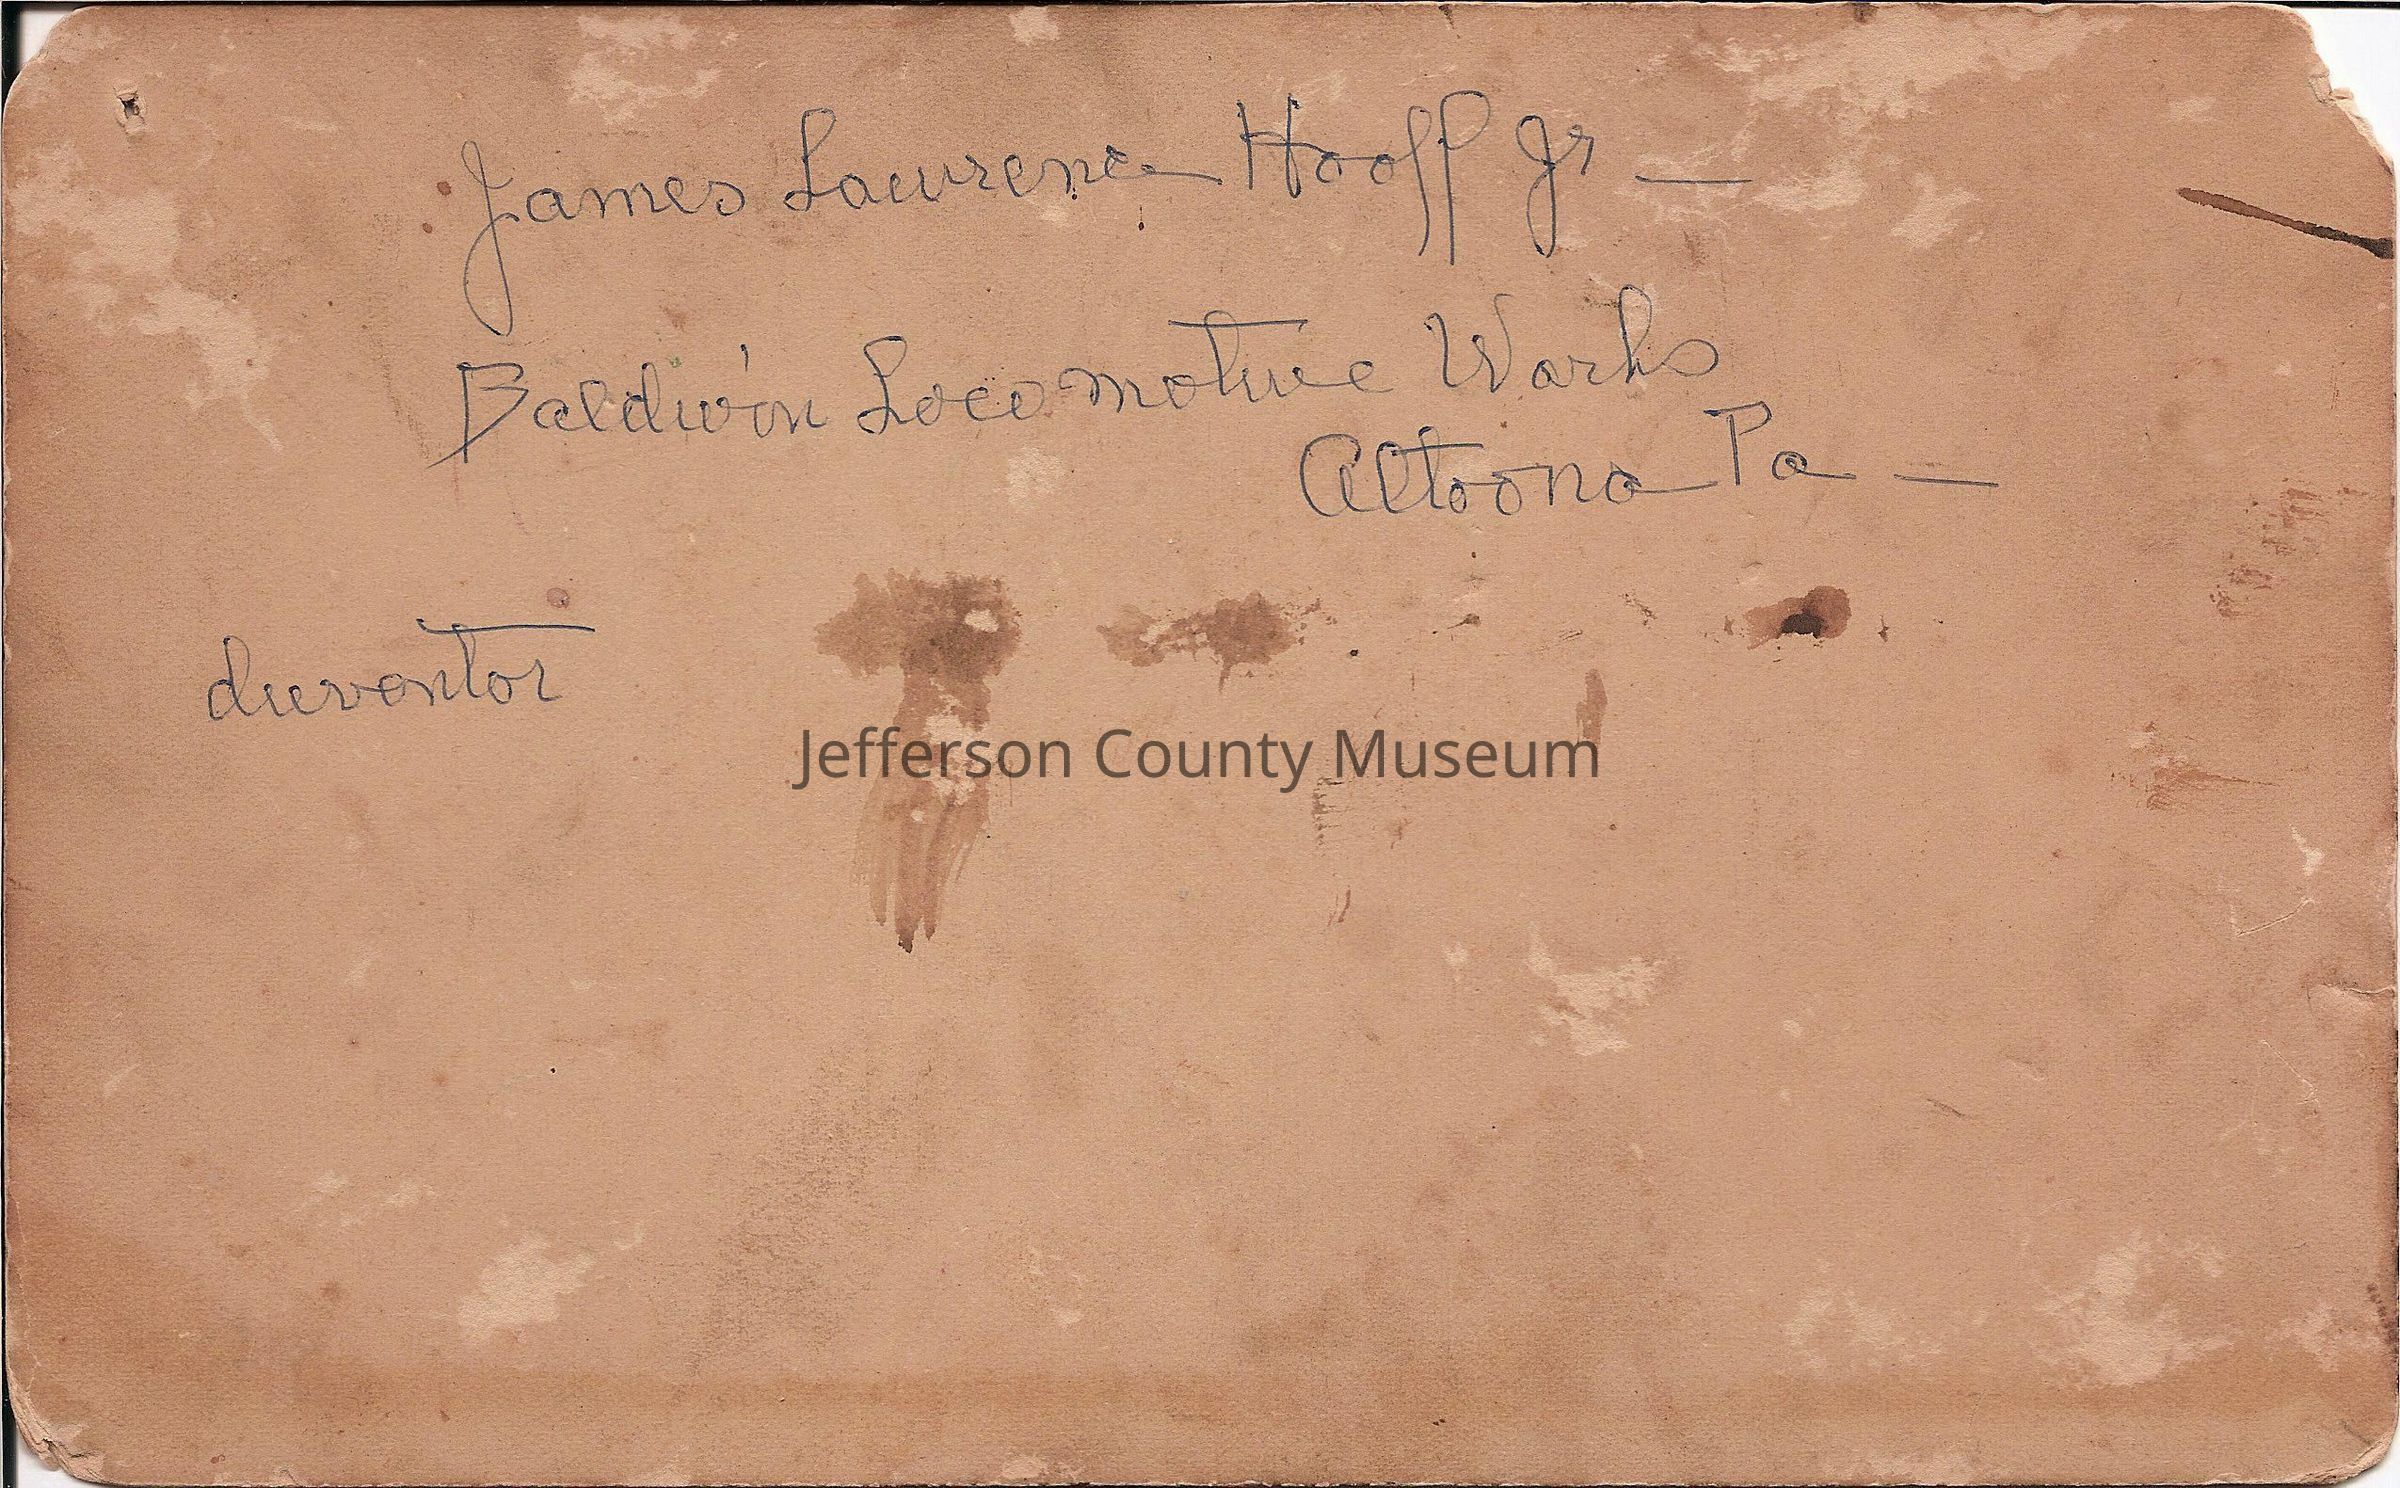 James Lawrence Hooff Jr —
Baldwin Locomotive Works
Altoona Pa —
Inventor
Jefferson County Museum